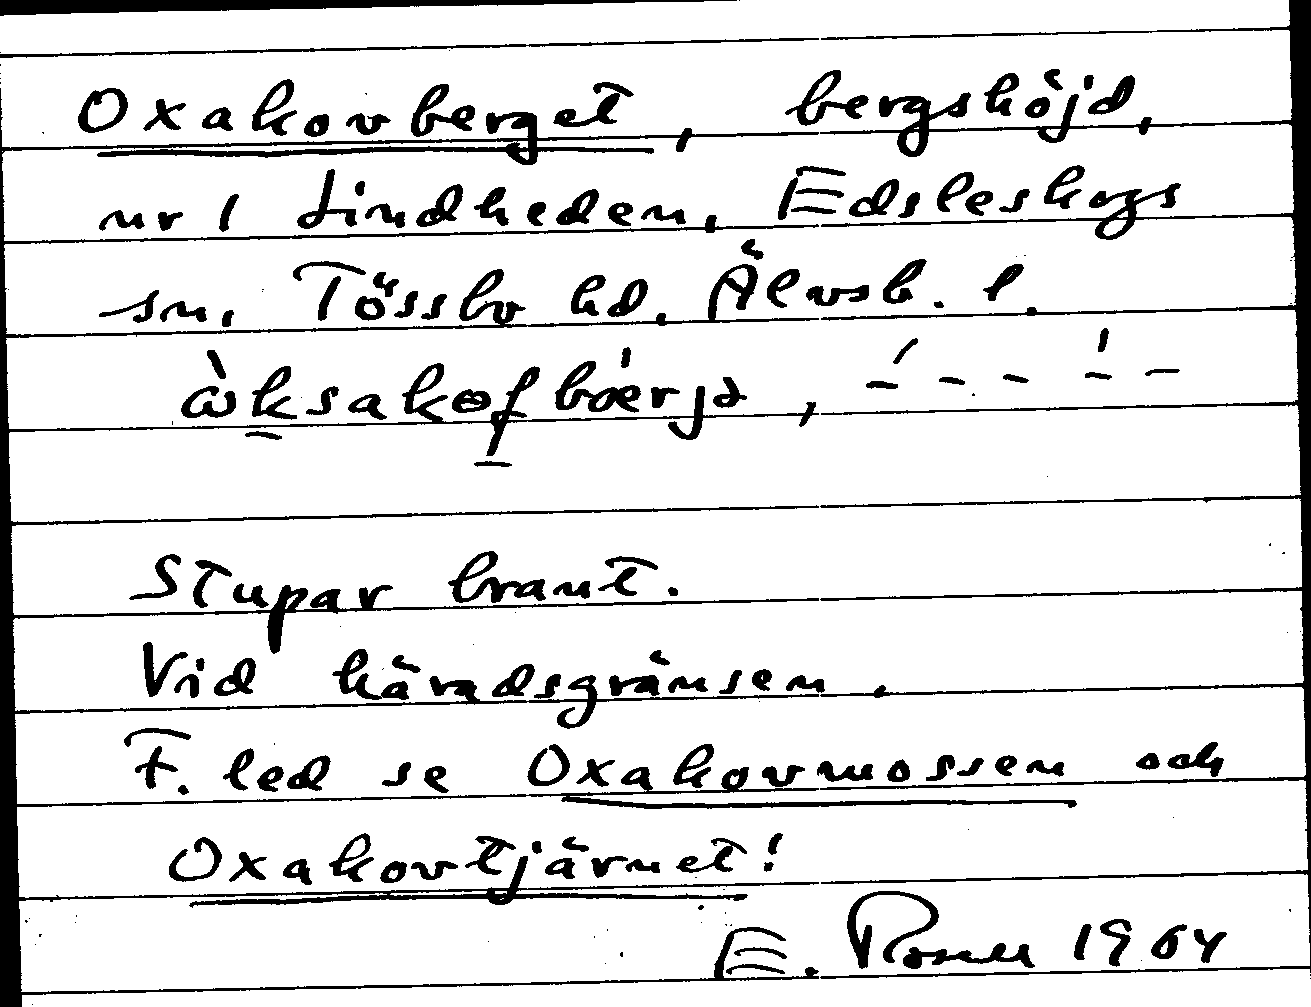 Oxakovberget, bergshöjd,
nr 1 Lindheden, Edsleskogs
sn, Tössbo hd. Älvsb. l.
Stupar brant.
Vid häradsgränsen.
F. led se Oxakovmossen och
Oxakovtjärnet!
E. Rosell 1964